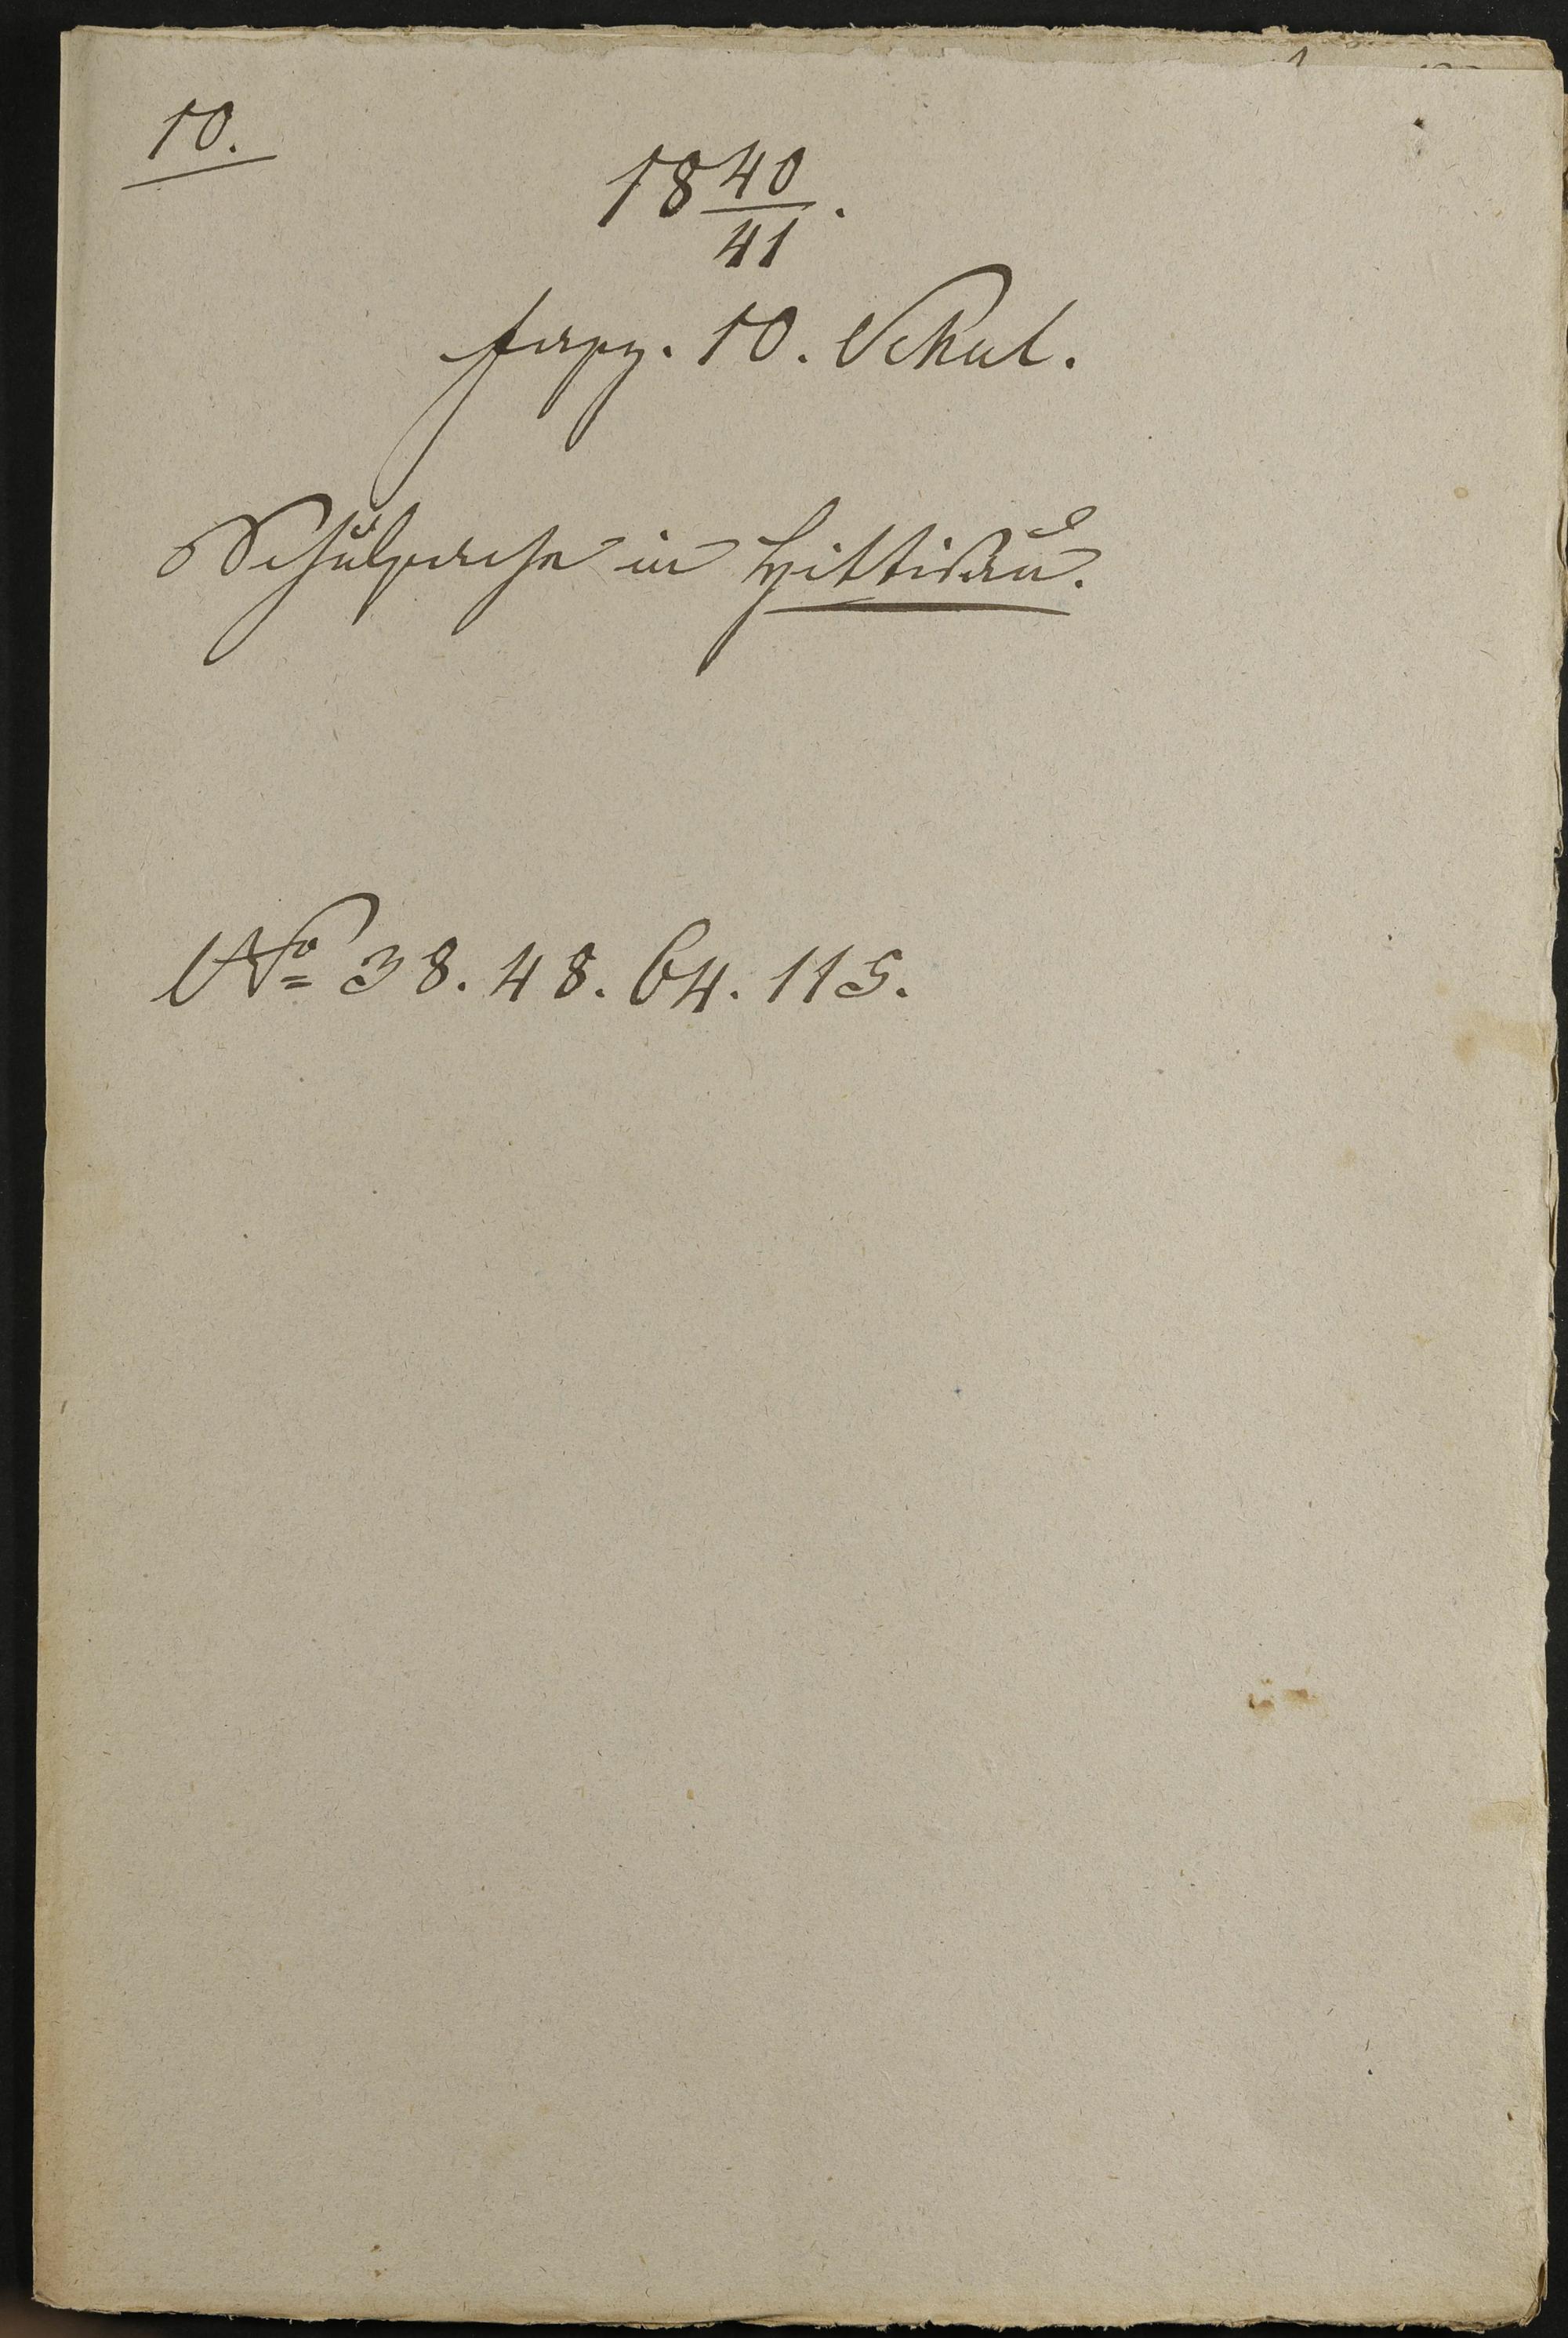 10.
1840/41.
fasz. 10. Schul.
Schulsache in Hittisau.
No 38. 48. 64. 115.